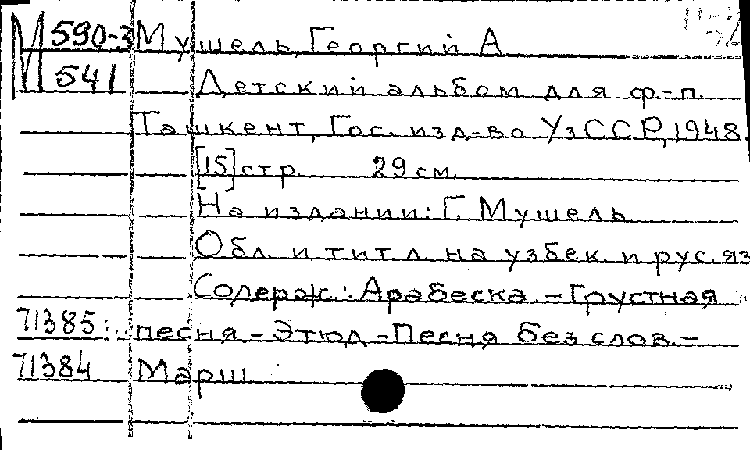 М 590-3 Мушель, Георгий А
541 Детский альбом для ф.-п.
Ташкент, Гос. изд-во УзССР, 1948.
[15] стр. 29 см.
На издании: Г. Мушель
Обл. и тит. л. на узбек. и рус. яз
Содерж.: Арабеска. - Грустная
71385 песня - Этюд - Песня без слов. -
71384 Марш